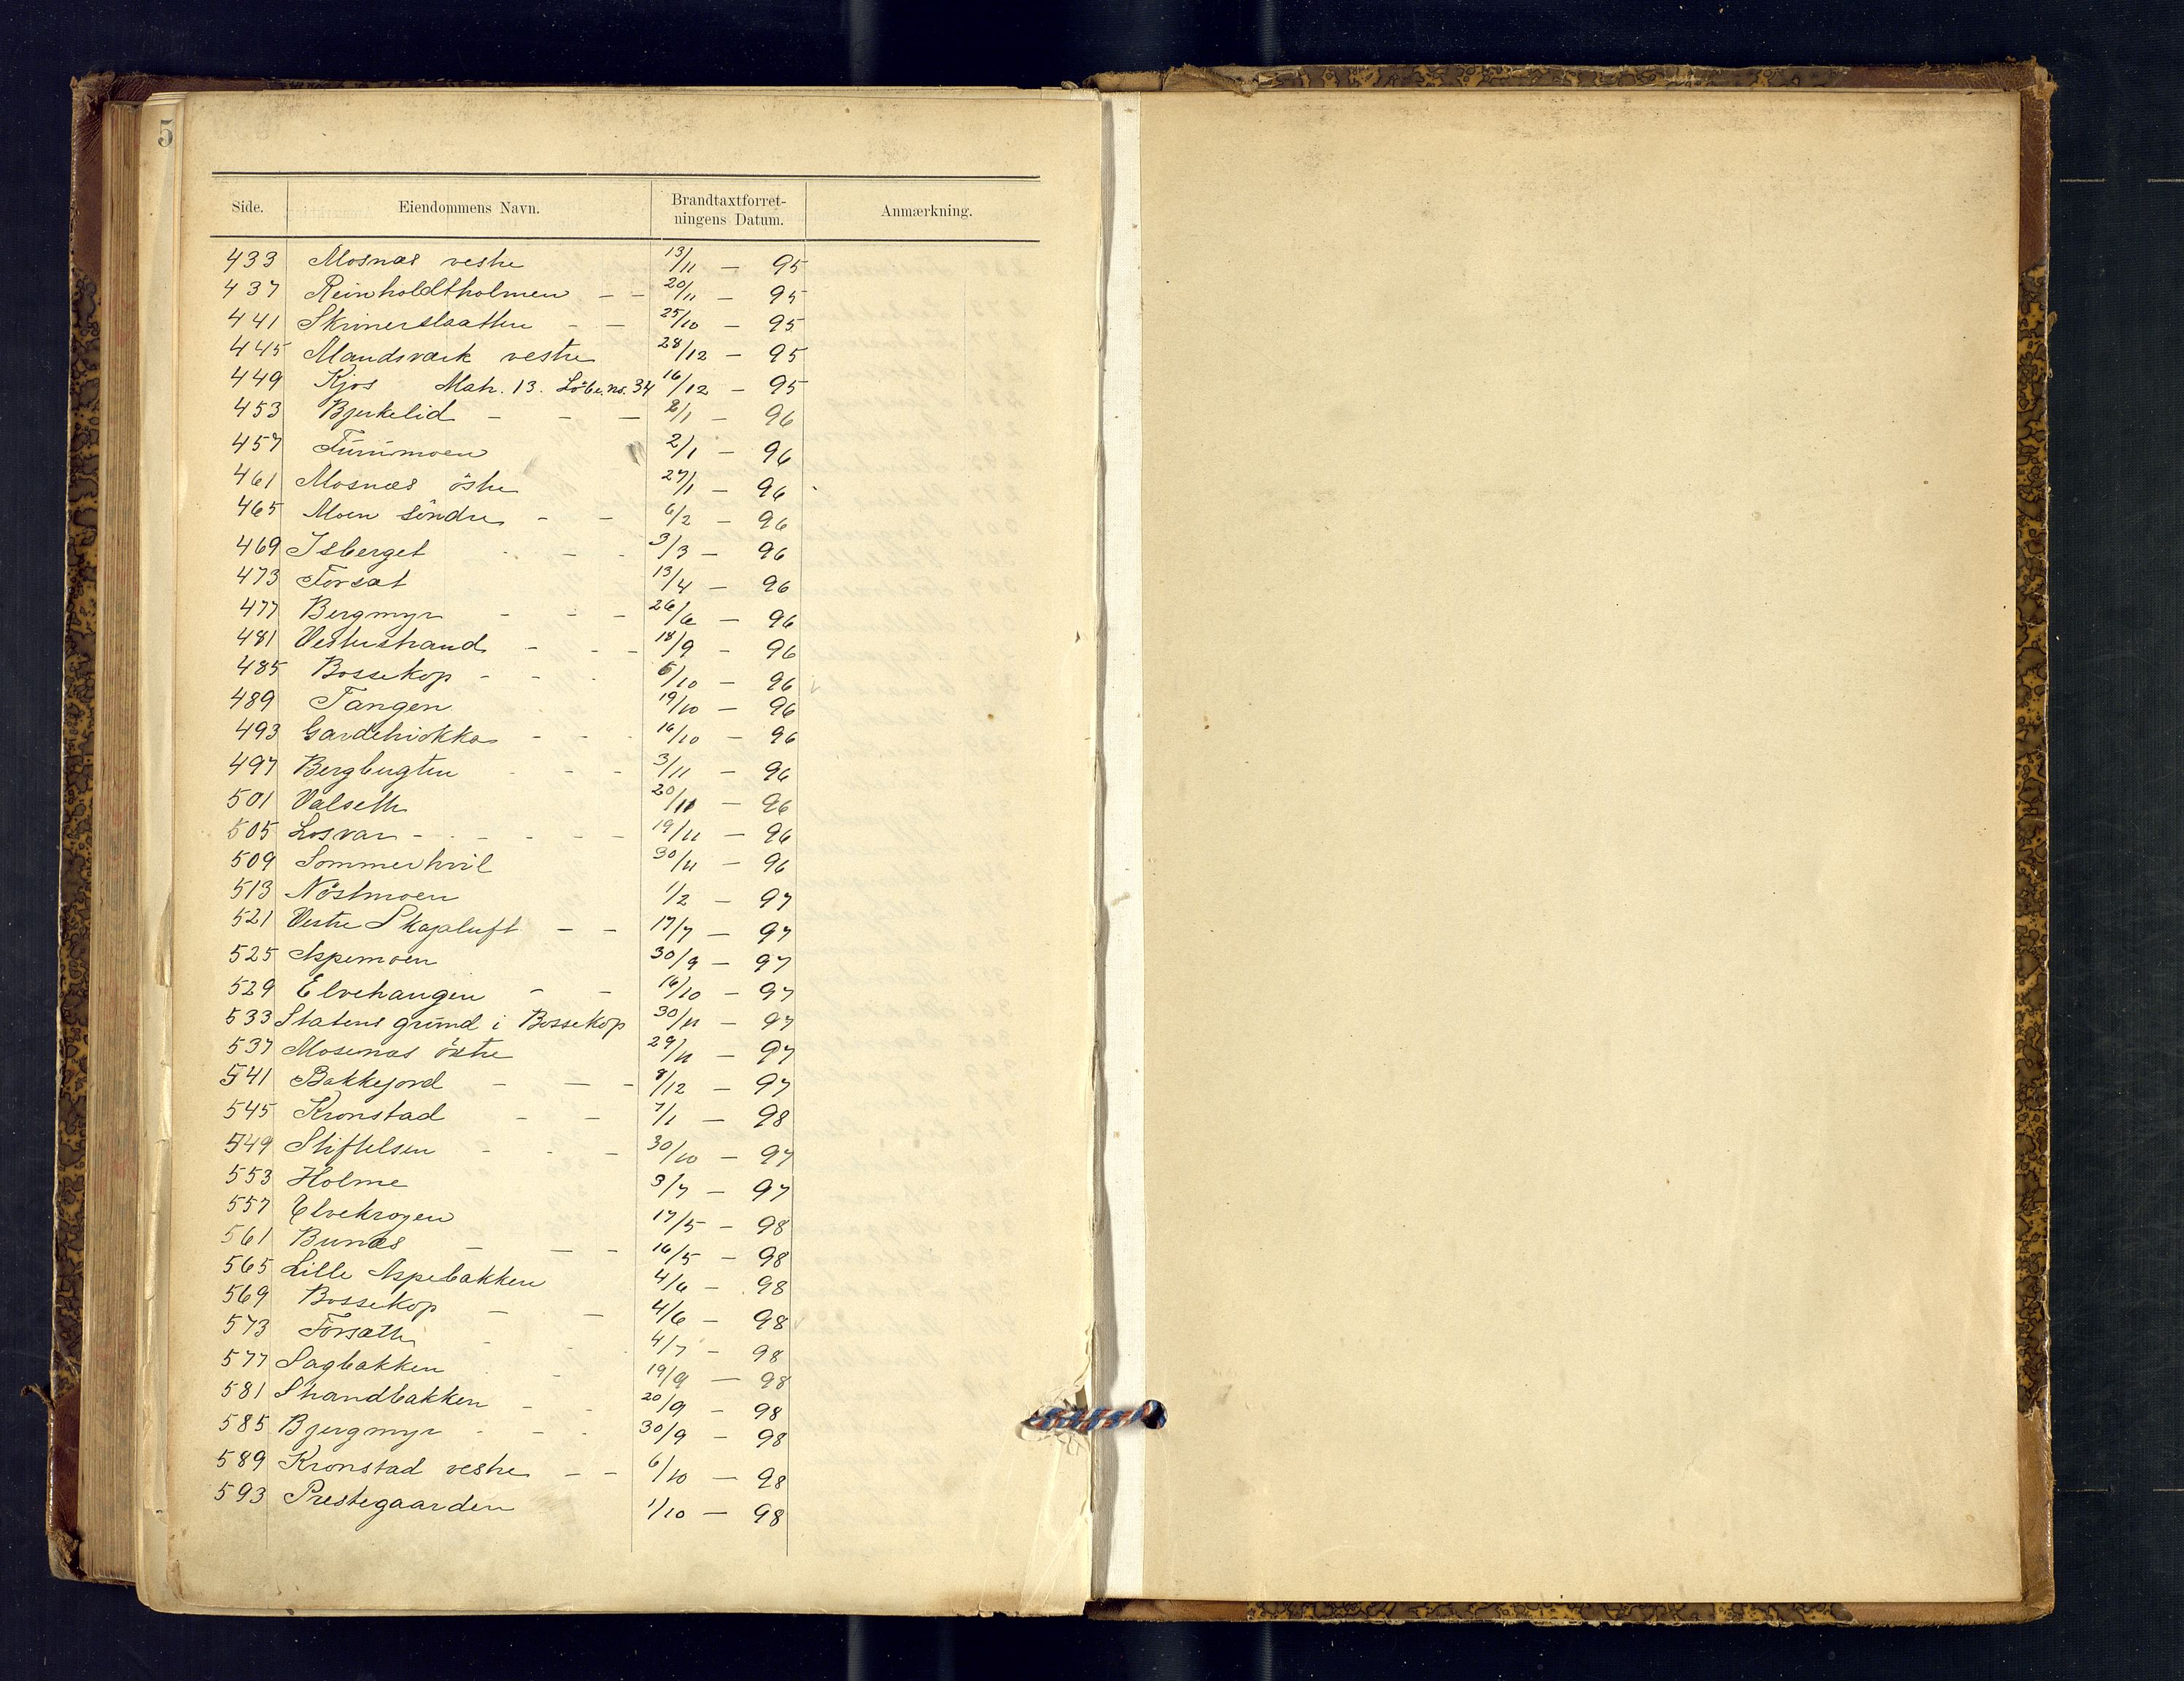 5
Side. Eiendommens Navn. Brandtaxtforret- Anmærkning.
ningens Datum.
433 Mosnæs vestre 13/11 — 95
437 Reinholdtholmen - - 20/11 — 95
441 - - 25/10 — 95
445 Mandsværk vestre 28/12 — 95
449 Kjos Matr. 13. Löbe.no. 34 16/12 — 95
453 Bjerkelid - - - /1 — 96
457 Furumoen 2/1 — 96
461 Mosnæs östre 27/1 — 96
465 Moen Söndre - - 6/2 — 96
469 Isberget - - - 3/3 — 96
473 Forsæt 13/4 — 96
477 Bergmyr - - - 26/6 — 96
481 Vestrestrand - - - 18/9 — 96
485 Bossekop - - - 6/10 — 96
489 Tangen 19/10 — 96
493 - - - 16/10 — 96
497 Bergbugten - - - 3/11 — 96
501 Valseth 20/11 — 96
505 Losvar - - - - - - 19/11 — 96
509 Sommerhvil 30/11 — 96
513 Nöstmoen 1/2 — 97
521 Vestre Skapaluft - - 17/7 — 97
525 Aspemoen 30/9 — 97
529 Elvehaugen - - 16/10 — 97
533 Statens grund i Bossekop 30/11 — 97
537 Mosenæs östre 29/11 — 97
541 Bakkejord - - - 8/12 — 97
545 Kronstad - - 7/1 — 98
549 Stiftelsen - - - 30/10 — 97
553 Holme 3/7 — 97
557 Elvekrogen 17/5 — 98
561 Bunæs - - - 16/5 — 98
565 Lille Aspebakken 4/6 — 98
569 Bossekop - - 4/6 — 98
573 Forsæth - - - 4/7 — 98
577 Sagbakken - 19/9 — 98
581 Strandbakken - - 20/9 — 98
585 Bjergmyr - - - 30/9 — 98
589 Kronstad vestre - - 6/10 — 98
593 Prestegaarden 1/10 — 98